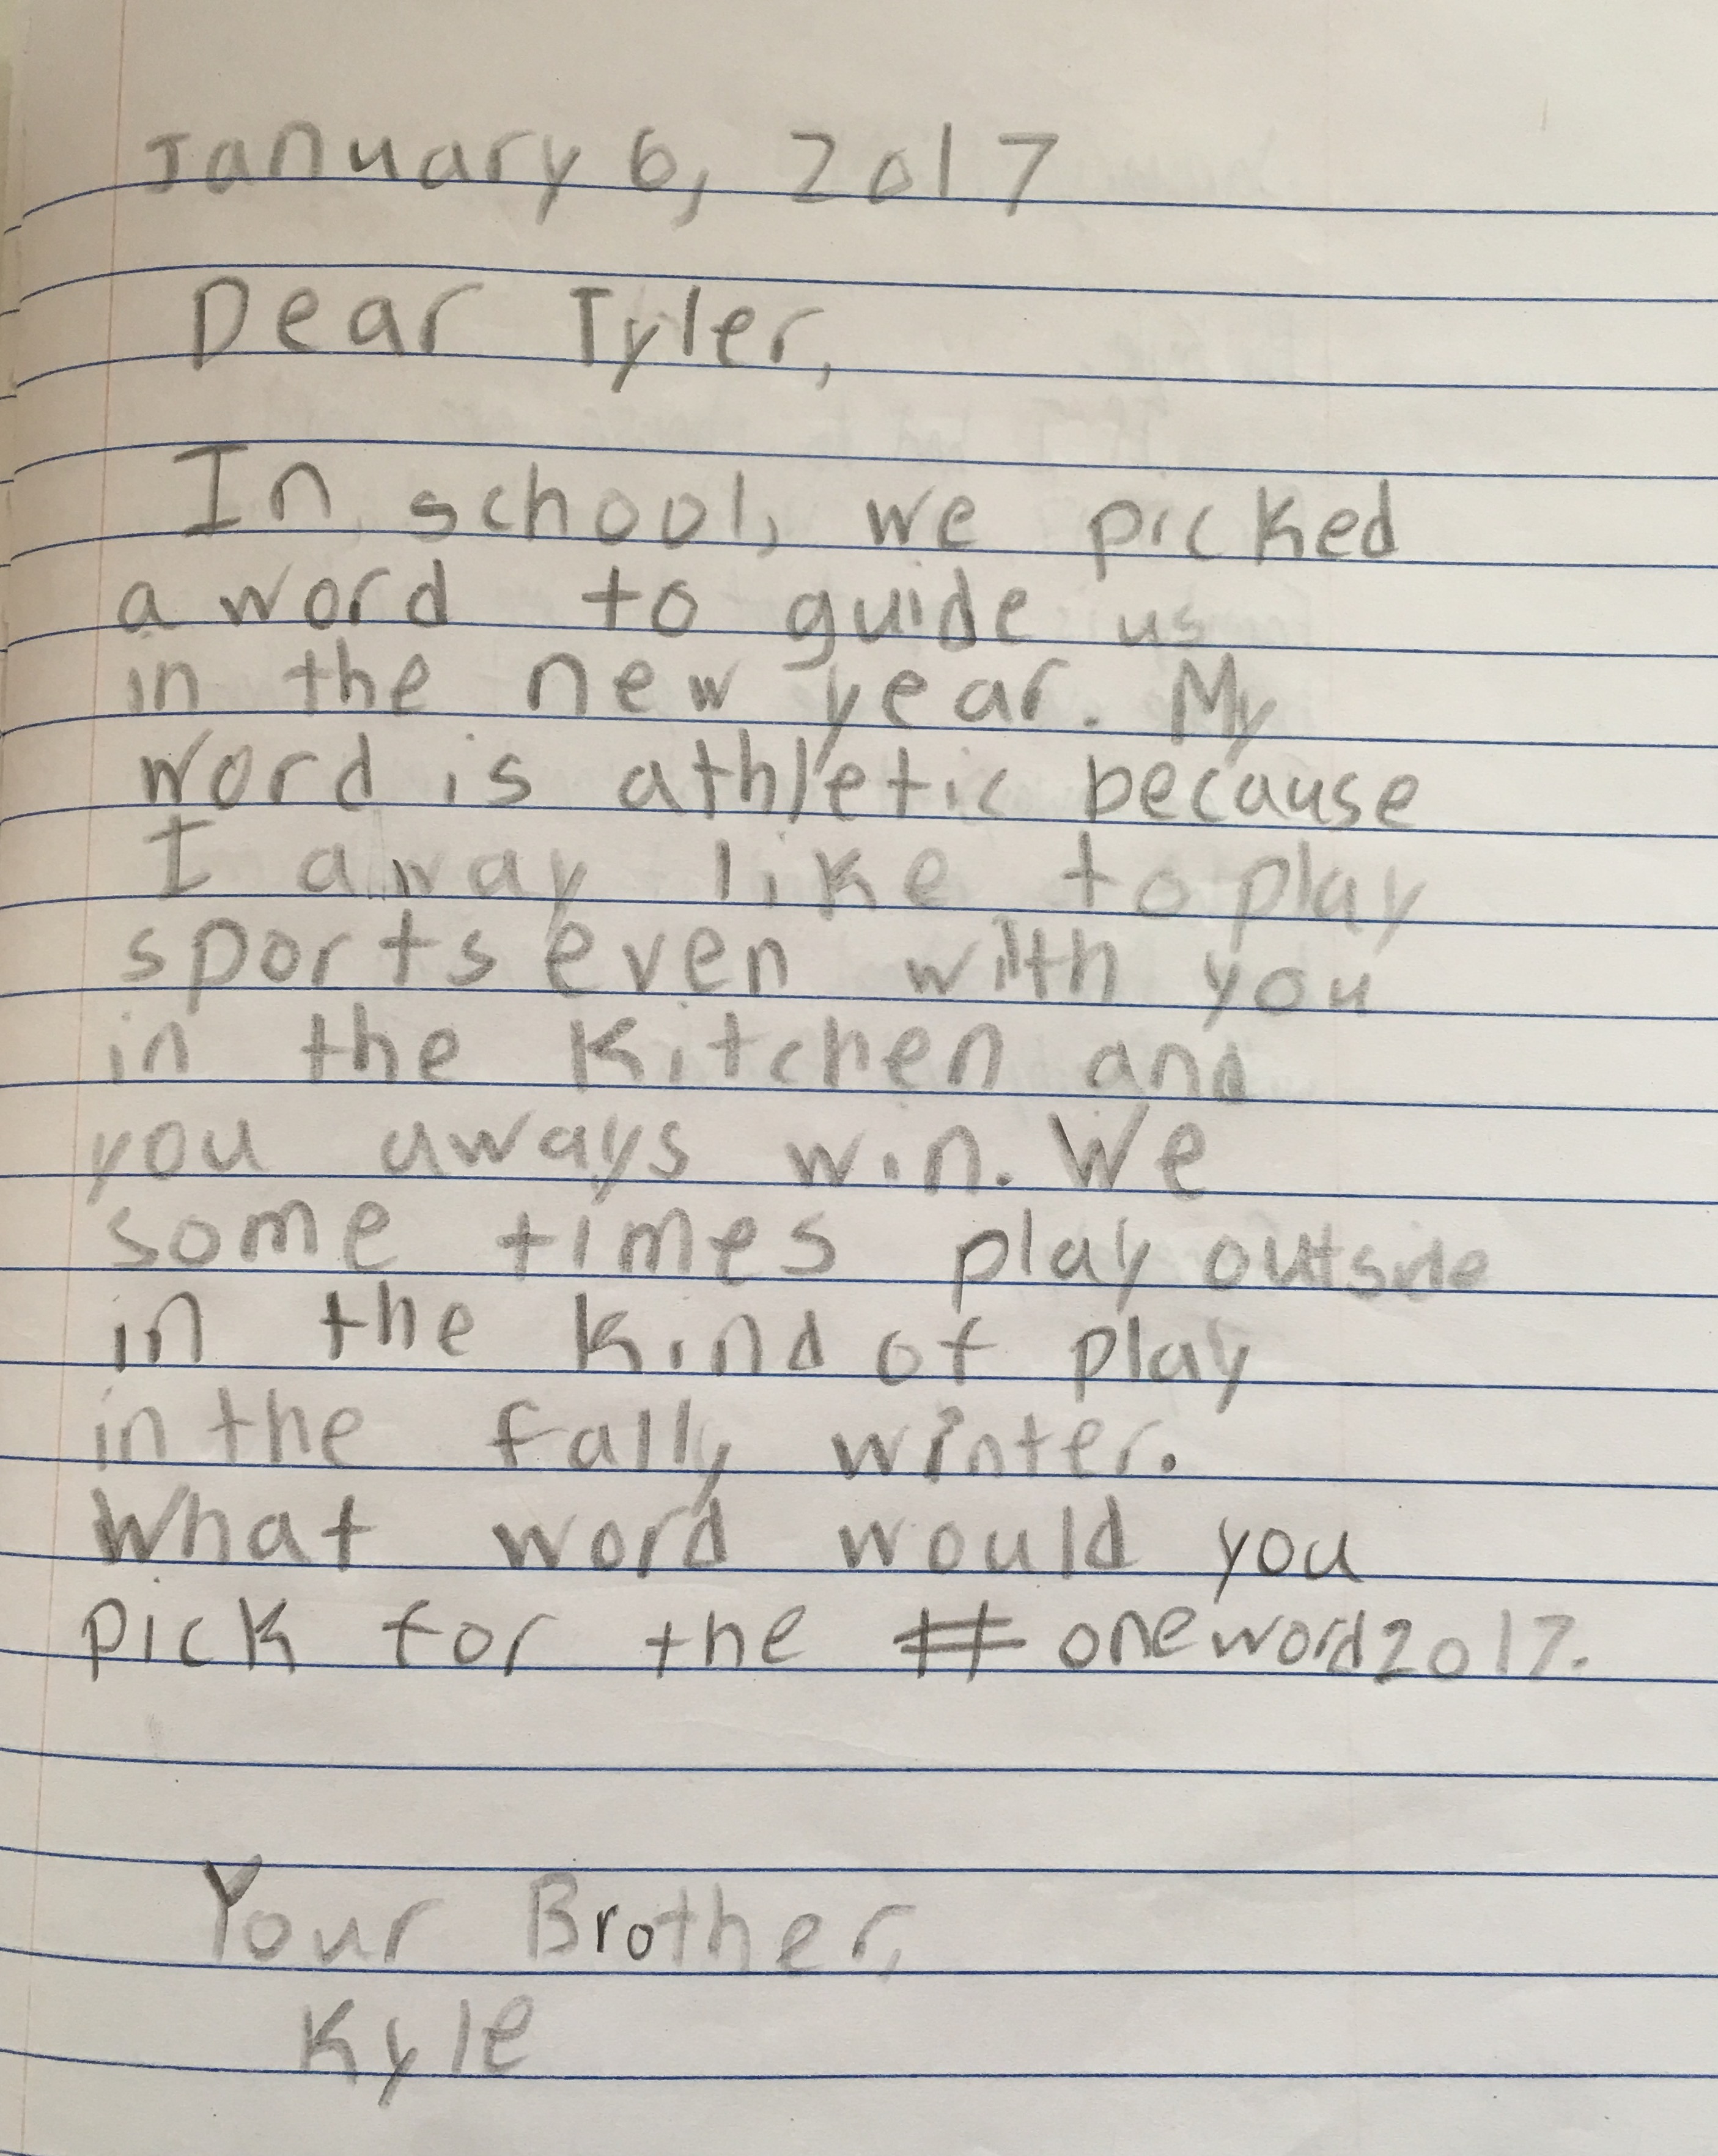 January 6, 2017
Dear Tyler,
In school, we picked
a word to guide us
in the new year. My
word is athletic because
I away like to play
sports even with you
in the kitchen and
you aways win. We
some times play outside
in the kind of play
in the fally winter.
What word would you
pick for the #oneword2017.
Your Brother,
Kyle